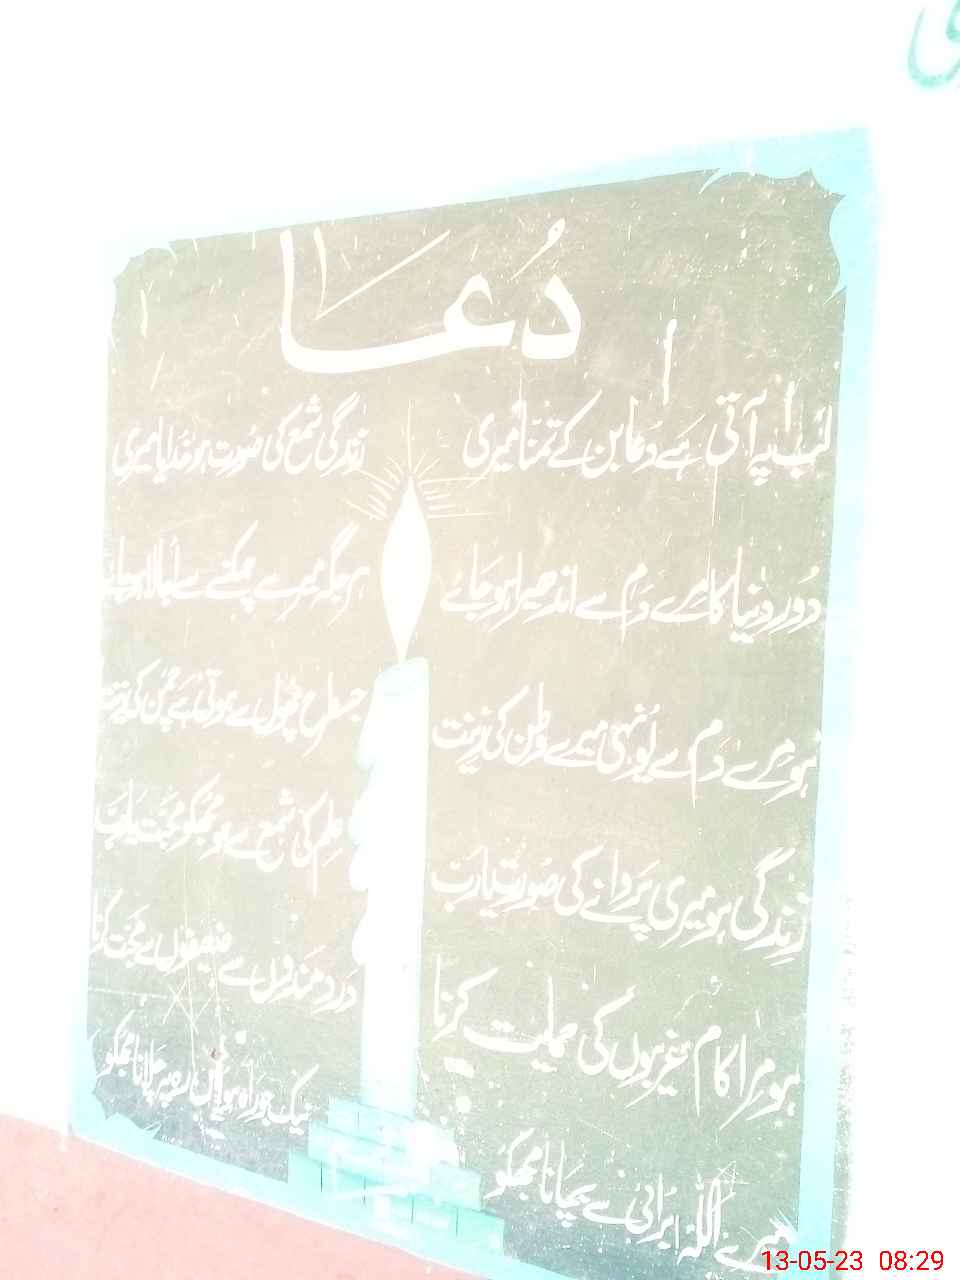 دُعا
لب پہ آتی ہے دعا بن کے تمنا میری
زندگی شمع کی صورت ہو خدایا میری
دُور دنیا کا مرے دم سے اندھیرا ہو جائے
ہر جگہ میرے چمکنے سے اجالا ہو جائے
ہو مرے دم سے یونہی میرے وطن کی زینت
جسطرح پھول سے ہوتی ہے چمن کی زینت
زندگی ہو میری پروانے کی صورت یارب
علم کی شمع سے ہو مجھکو محبت یارب
ہو مرا کام غریبوں کی حمایت کرنا
دردمندوں سے ضعیفوں سے محبت کرنا
میرے اللہ برائی سے بچانا مجھکو
نیک جو راہ ہو اس رہ پہ چلانا مجھکو
13-05-23 08:29